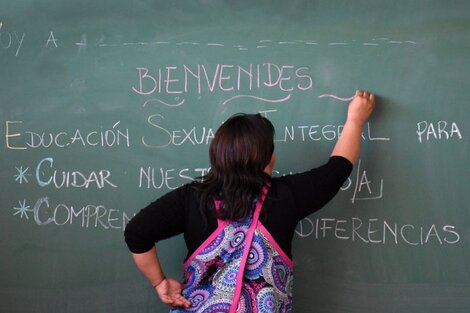 oy A
BIENVENIDES
EDUCACIÓN SEXUAL INTEGRAL PARA
* CUIDAR NUEST
* COMPREN DIFERENCIAS